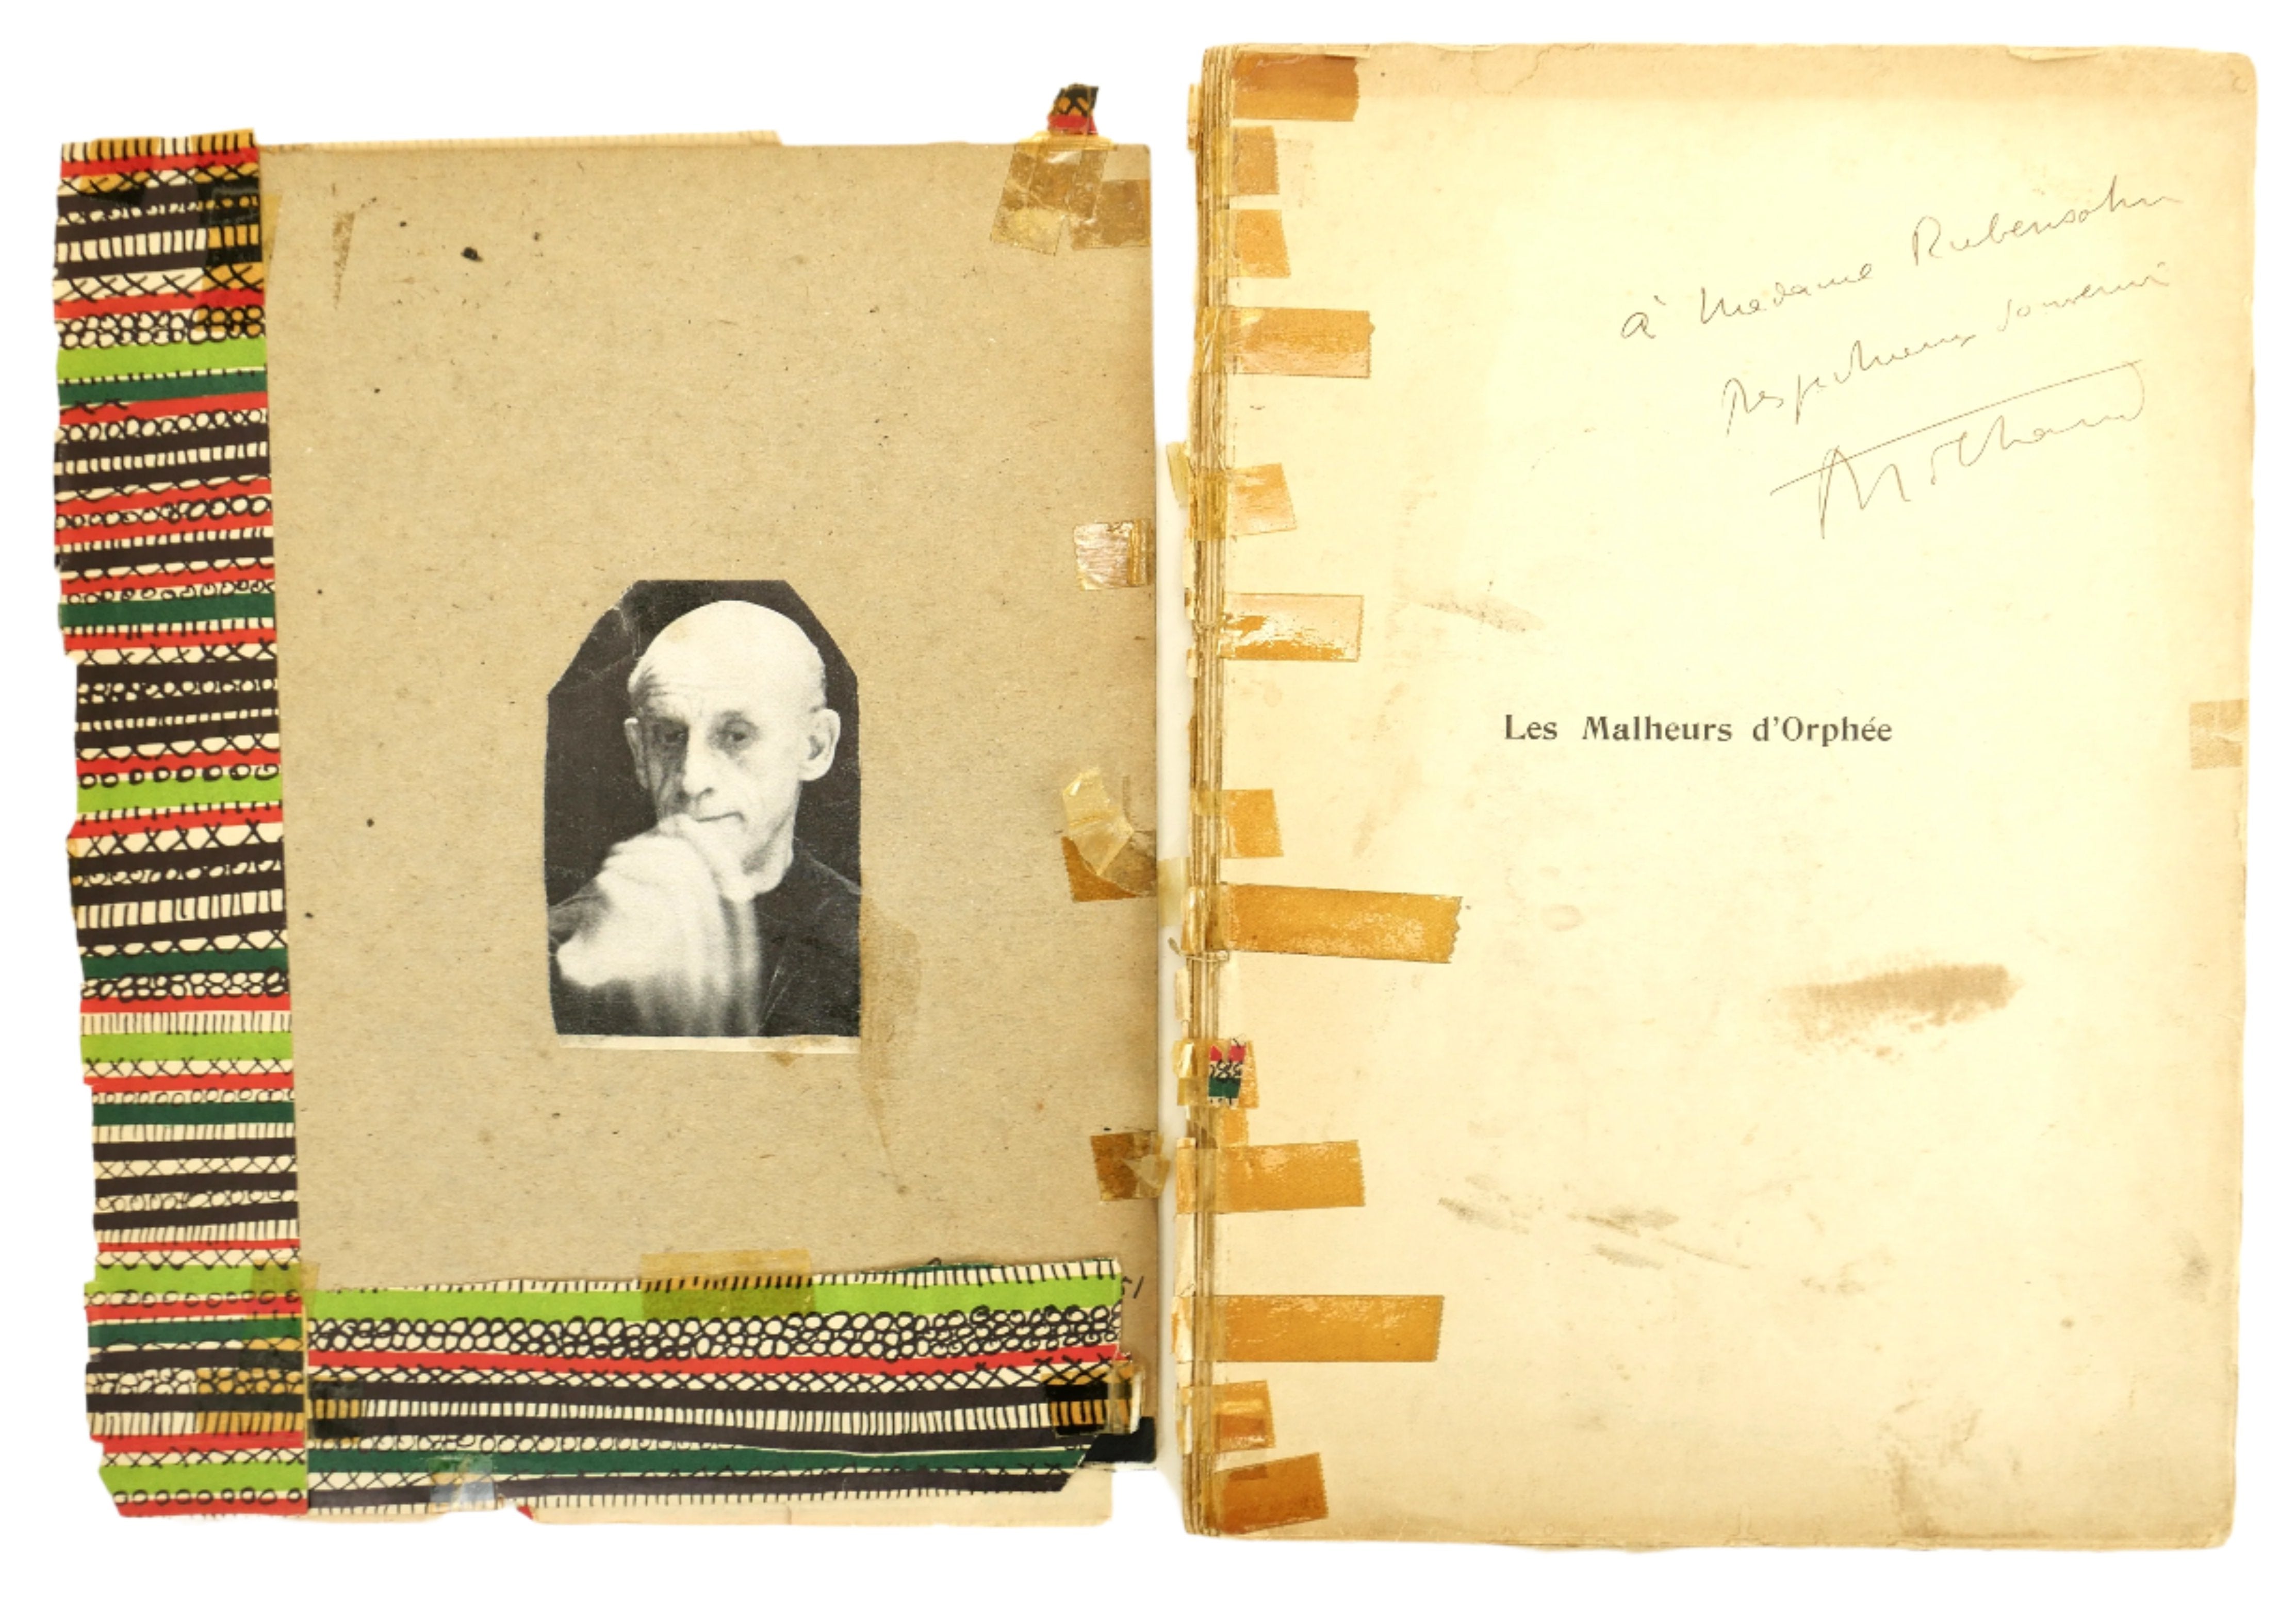 à Madame Rubensohn
Respectueux souvenir
Milhaud
Les Malheurs d'Orphée